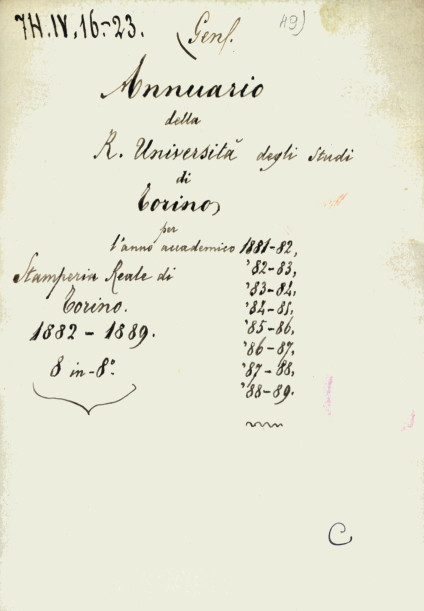 7H.IV,16-23. Genf. 49)
Annuario
della
R. Università degli Studi
di
Torino,
per
l'anno accademico 1881-82,
'82-83,
Stamperia Reale di
'83-84,
Torino.
'84-85,
1882-1889.
'85-86,
'86-87,
8 in-8°.
'87-88,
'88-89.
C